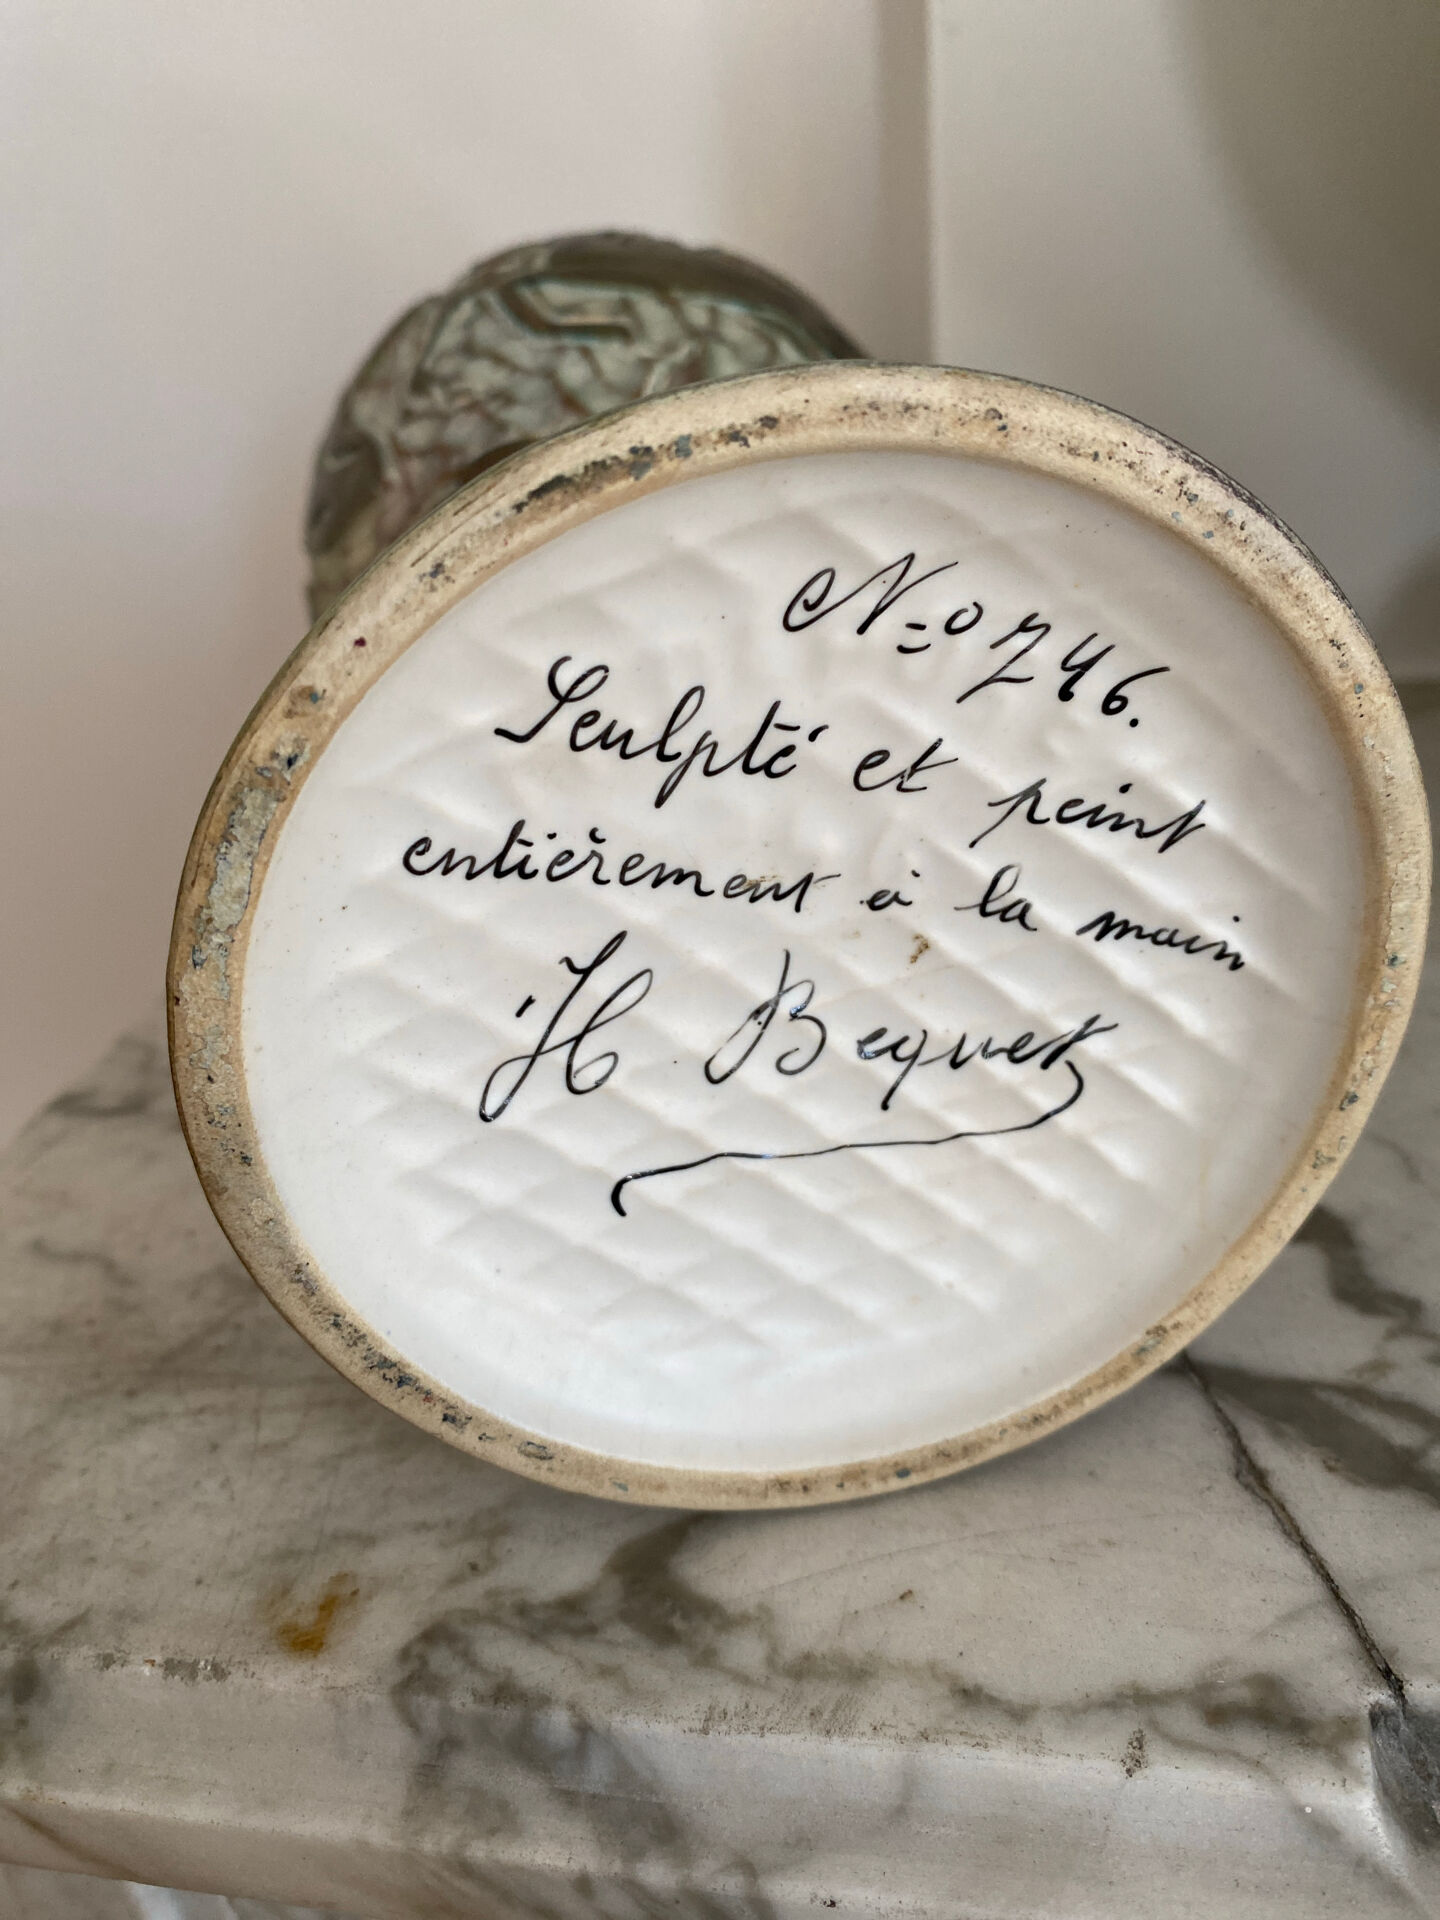 No 746.
Sculpté et peint
entièrement à la main
H Bequet